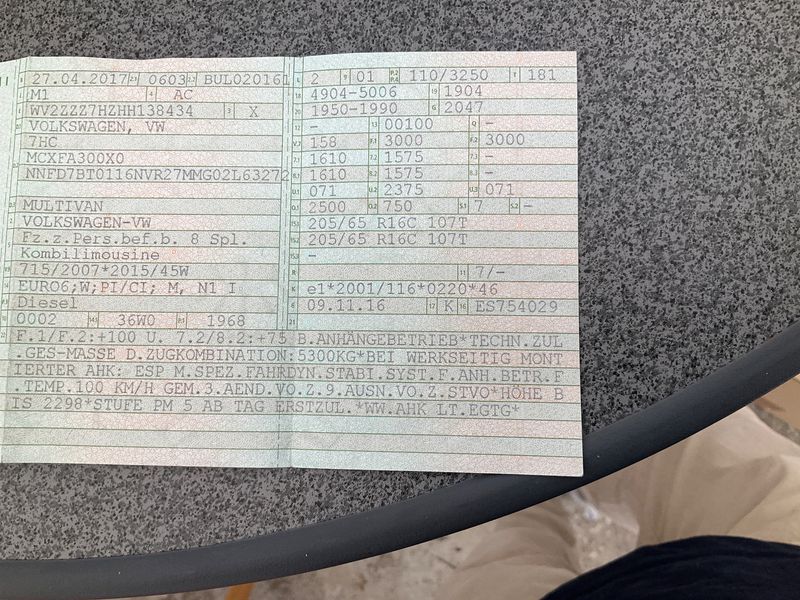 27.04.2017 0603 BUL020161
M1 AC
WV2ZZZ7HZHH138434 X
VOLKSWAGEN, VW
7HC
MCXFA300X0
NNFD7BT0116NVR27MMG02L63272
MULTIVAN
VOLKSWAGEN-VW
Fz.z.Pers.bef.b. 8 Spl.
Kombilimousine
715/2007*2015/45W
EURO6;W;PI/CI; M, N1 I
Diesel
0002 36W0 1968
2 01 110/3250 181
4904-5006 1904
1950-1990 2047
- 00100 -
158 3000 3000
1610 1575 -
1610 1575 -
071 2375 071
2500 750 7 -
205/65 R16C 107T
205/65 R16C 107T
-
7/-
e1*2001/116*0220*46
09.11.16 K ES754029
F.1/F.2:+100 U. 7.2/8.2:+75 B.ANHÄNGEBETRIEB*TECHN.ZUL
.GES-MASSE D.ZUGKOMBINATION:5300KG*BEI WERKSEITIG MONT
IERTER AHK: ESP M.SPEZ.FAHRDYN.STABI.SYST.F.ANH.BETR.F
.TEMP.100 KM/H GEM.3.AEND.VO.Z.9.AUSN.VO.Z.STVO*HÖHE B
IS 2298*STUFE PM 5 AB TAG ERSTZUL.*WW.AHK LT.EGTG*